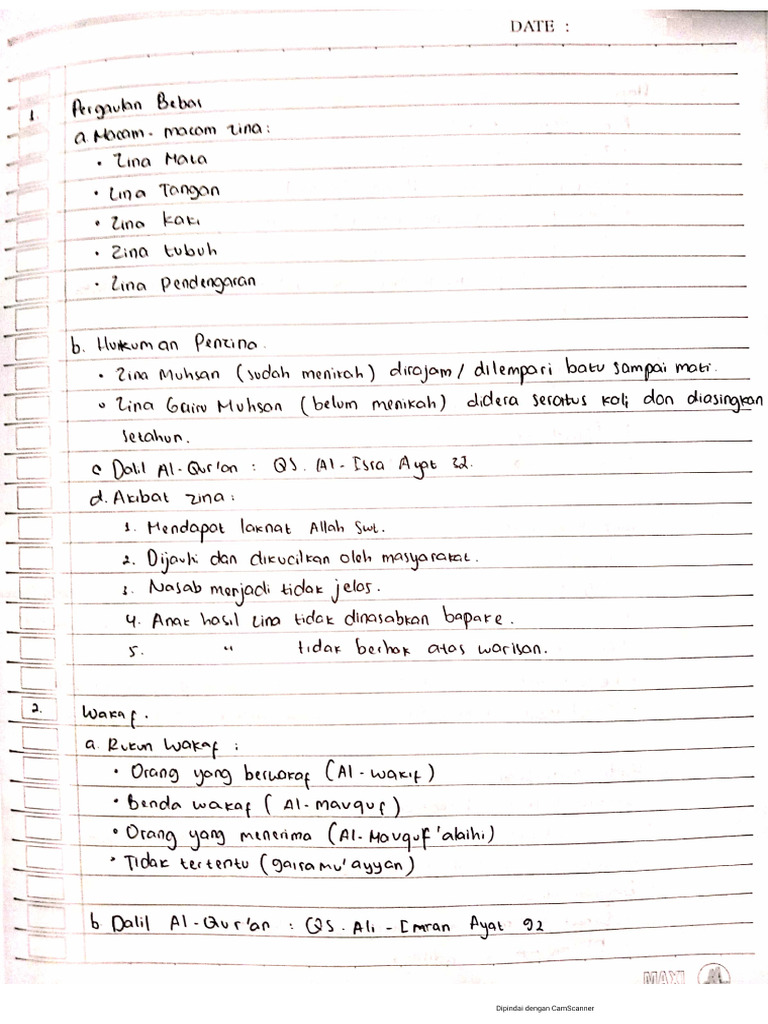 DATE :
1. Pergaulan Bebas
a. Macam - macam zina :
• Zina Mata
• Zina Tangan
• Zina Kaki
• Zina tubuh
• Zina Pendengaran
b. Hukuman Penzina.
• Zina Muhsan ( sudah menikah ) dirajam / dilempari batu sampai mati.
• Zina Gairu Muhsan ( belum menikah ) didera seratus kali dan diasingkan
setahun.
c Dalil Al-Qur'an : QS. Al - Isra Ayat 32.
d. Akibat zina :
1. Mendapat laknat Allah Swt.
2. Dijauhi dan dikucilkan oleh masyarakat.
3. Nasab menjadi tidak jelas.
4. Anak hasil zina tidak dinasabkan bapake.
5. " tidak berhak atas warisan.
2. Wakaf.
a. Rukun Wakaf :
• Orang yang berwakaf (Al - wakif)
• Benda wakaf ( Al - mauquf )
• Orang yang menerima (Al- Mauquf 'alaihi)
• Tidak tertentu (gairamu'ayyan)
b Dalil Al-Qur'an : QS. Ali - Imran Ayat 92
MAXI
Dipindai dengan CamScanner